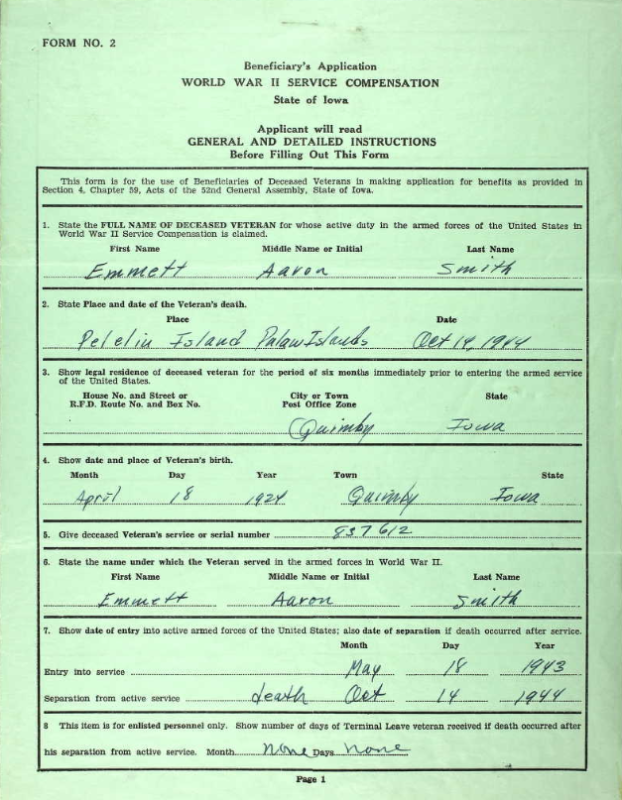 FORM NO. 2
Beneficiary's Application
WORLD WAR II SERVICE COMPENSATION
State of Iowa
Applicant will read
GENERAL AND DETAILED INSTRUCTIONS
Before Filling Out This Form
This form is for the use of Beneficiaries of Deceased Veterans in making application for benefits as provided in
Section 4, Chapter 59, Acts of the 52nd General Assembly, State of Iowa.
1. State the FULL NAME OF DECEASED VETERAN for whose active duty in the armed forces of the United States in
World War II Service Compensation is claimed.
First Name Middle Name or Initial Last Name
Emmett Aaron Smith
2. State Place and date of the Veteran's death.
Place Date
Peleliu Island Palau Islands Oct 14, 1944
3. Show legal residence of deceased veteran for the period of six months immediately prior to entering the armed service
of the United States.
House No. and Street or City or Town State
R.F.D. Route No. and Box No. Post Office Zone
Quimby Iowa
4. Show date and place of Veteran's birth.
Month Day Year Town State
April 18 1924 Quimby Iowa
5. Give deceased Veteran's service or serial number 837612
6. State the name under which the Veteran served in the armed forces in World War II.
First Name Middle Name or Initial Last Name
Emmett Aaron Smith
7. Show date of entry into active armed forces of the United States; also date of separation if death occurred after service.
Month Day Year
Entry into service May 18 1943
Separation from active service death Oct 14 1944
8 This item is for enlisted personnel only. Show number of days of Terminal Leave veteran received if death occurred after
his separation from active service. Month none Days none
Page 1